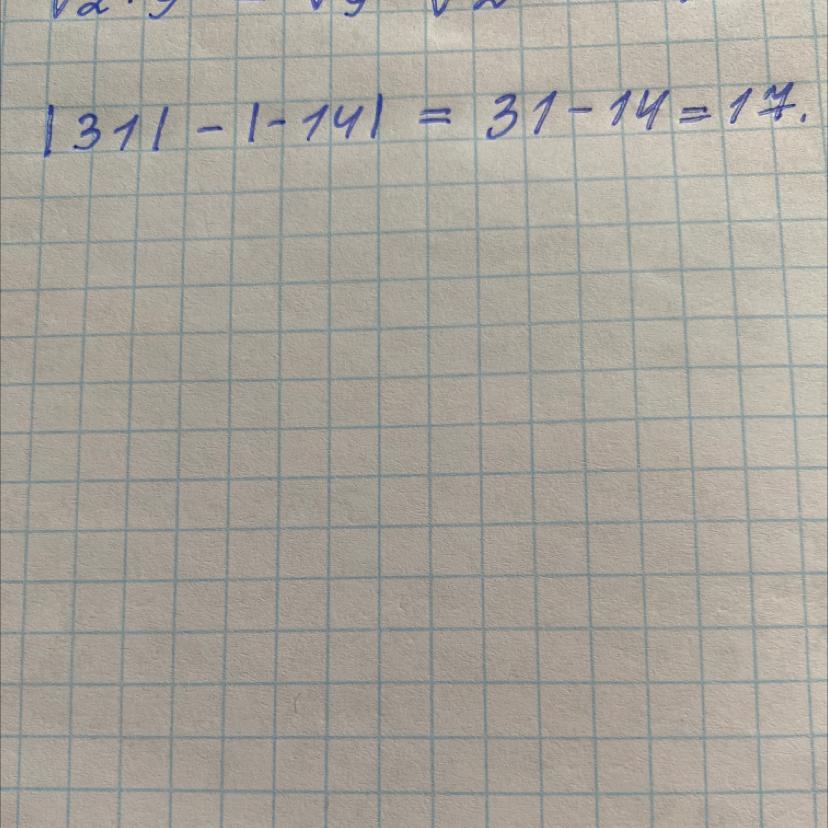 |31| - |-14| = 31 - 14 = 17.